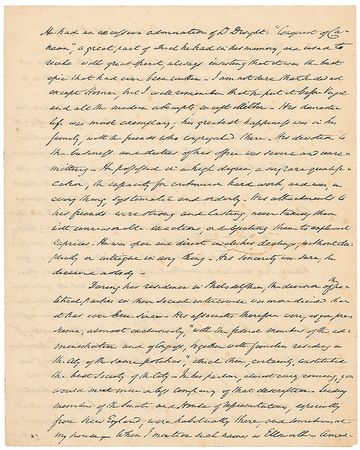 He had an excessive admiration of Dr Dwight's "Conquest of Ca-
naan", a great part of which he had in his memory, and used to
recite with great spirit, always insisting that it was the best
epic that had ever been written. I am not sure that he did
except Homer, but I well remember that he put it before Virgil
and all the modern attempts, except Milton. His domestic
life was most exemplary. his greatest happiness was in his
family, with the friends who congregated there. His devotion to
the business and duties of his office was severe and unre-
mitting. He possessed in a high degree, a very rare qualifi-
cation, the capacity for continued hard work, and was, in
every thing, systematic and orderly. His attachments to
his friends were strong and lasting, never taxing them
with unreasonable exactions, or subjecting them to unpleasant
caprices. He was open and direct in all his dealings, without du-
plicity or intrigue in any thing. His sincerity was sure, he
deceived nobody.
During his residence in Philadelphia, the division of the po-
litical parties in their social intercourse was more decided than
it has ever been since. His associates therefore were, as you pre-
sume, almost exclusively, "with the federal members of the ad-
ministration and of Congress, together with families residing in
the City of the same politicks" which then, certainly, constituted
the best Society of the City. In his parlor, almost every evening, you
would meet more or less company of that description. leading
members of the Senate and House of Representatives, especially
from New England, were habitually there, and sometimes at
my house. When I mention such names as Ellsworth, Ames,